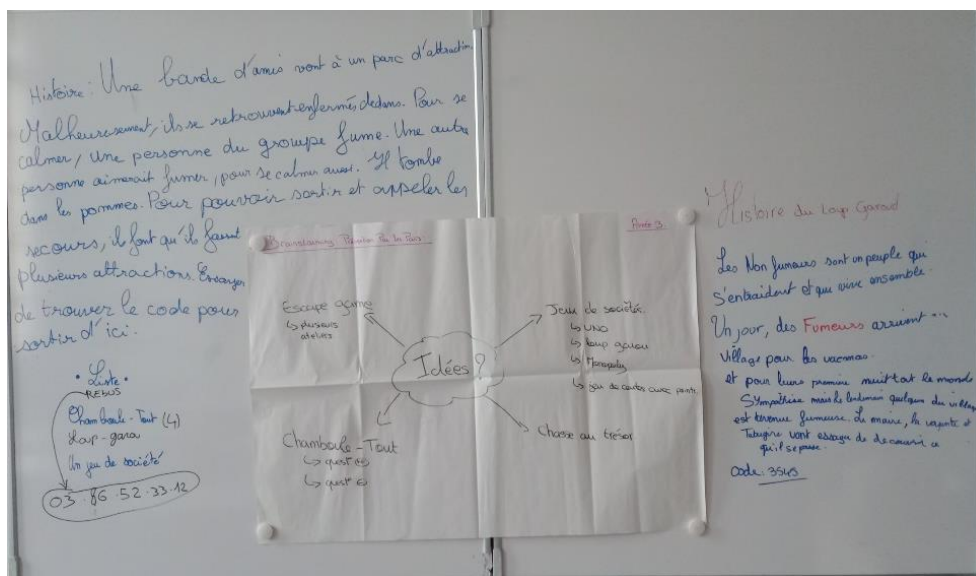 Histoire: Une bande d'amis vont à un parc d'attraction
Malheureusement, ils se retrouvent enfermés dedans. Pour se
calmer, une personne du groupe fume. Une autre
personne aimerait fumer, pour se calmer aussi. Il tombe
dans les pommes. Pour pouvoir sortir et appeler les
secours, il faut qu'ils fassent
plusieurs attractions. Essayez
de trouver le code pour
sortir d'ici.
• Liste •
REBUS
Chamboule-Tout (4)
Loup-garou
Un jeu de société
03.86.52.33.12
Brainstorming Prévention Par les Pairs
Année 3
Escape game
↳ plusieurs
ateliers
Idées?
Jeux de sociétés.
↳ UNO
↳ loup garou
↳ Monopoly
↳ jeu de cartes avec points
Chamboule-Tout
↳ quest° ⊕
↳ quest° ⊖
Chasse au trésor
Histoire du Loup Garoud
Les Non fumeurs sont un peuple qui
s'entraident et qui vive ensemble.
Un jour, des Fumeurs arrivent
village pour les vacances.
et pour leurs première nuit tout le monde
Sympathise mais le lendemain quelqun du village
est devenue fumeuse. Le maire, la voyante et
vont essayer de découvrir ce
qu'il se passe.
Code: 3545